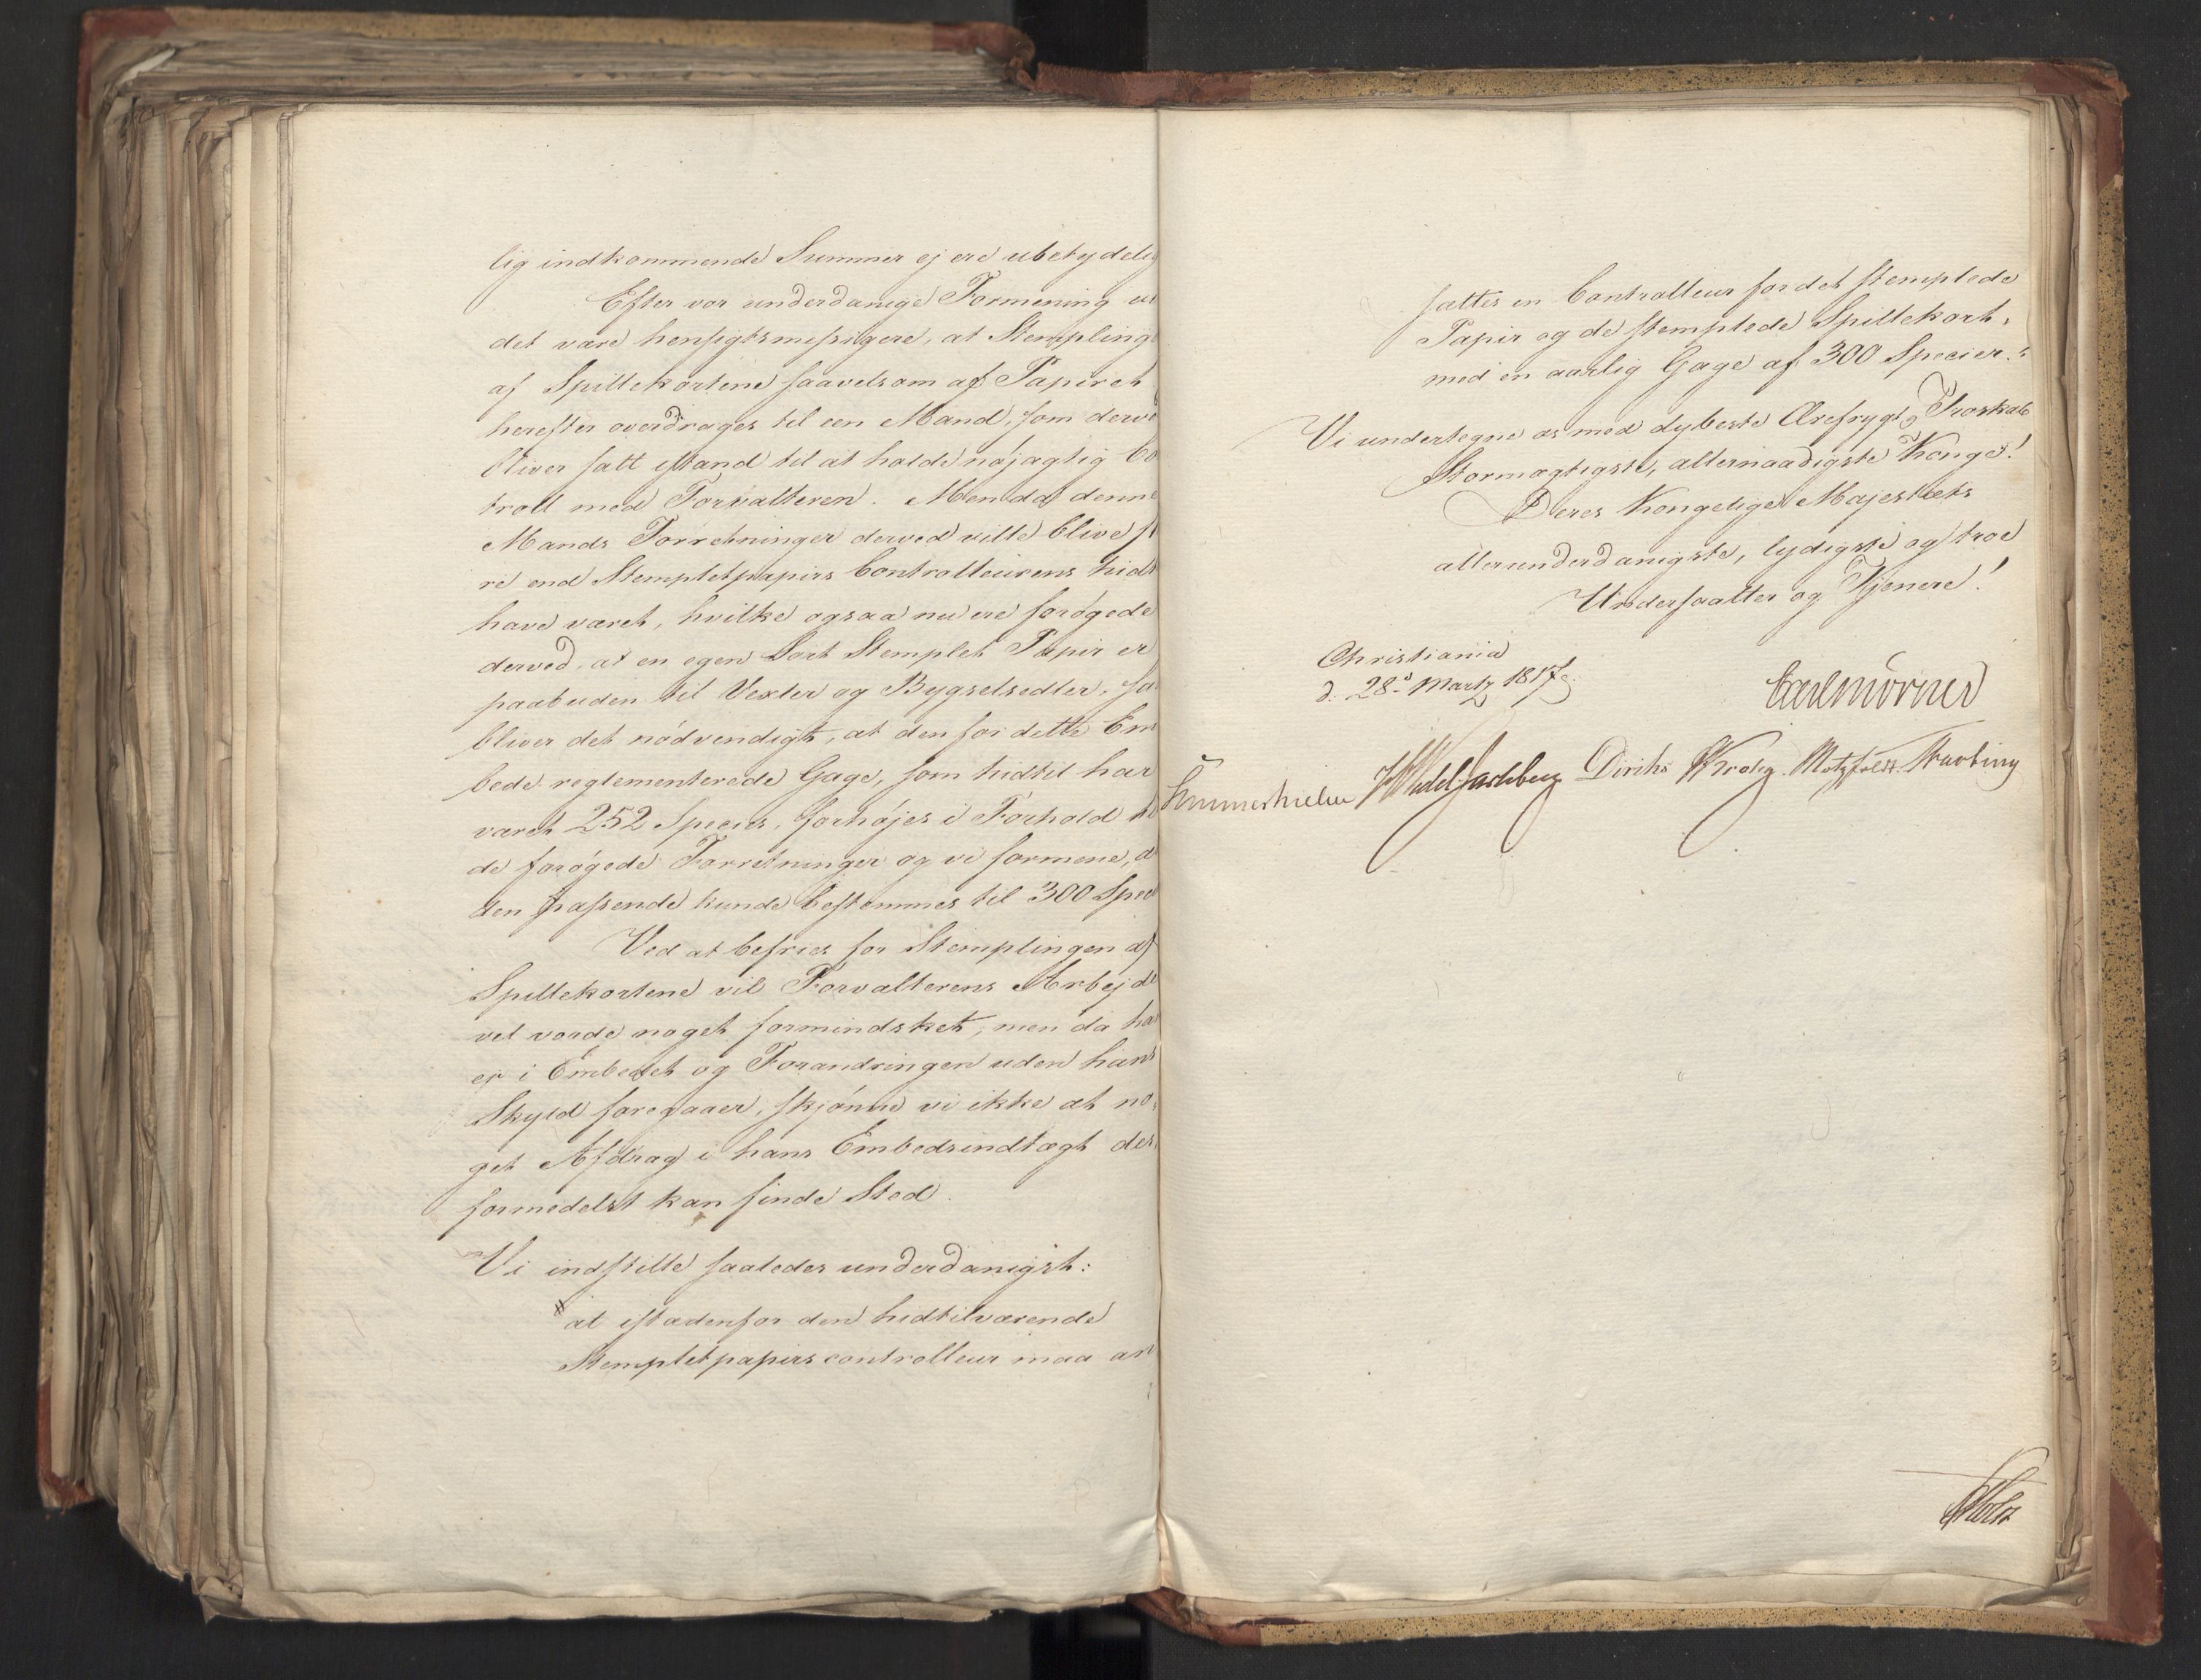 lig indkommende Summer ej ere ubetydelig
Efter vor underdanige Formening
det være hensigtsmæssigere, at Stempling
af Spillekortene saavelsom af Papiret
herefter overdrages til een Mand, som derve
bliver satt istand til at holde nøjagtig Co
troll med Forvalteren. Men da denne
Mands Forretninger derved ville blive st
re end Stempletpapirs Controlleurens hidt
have været, hvilke ogsaa nu ere forøgede
derved, at en egen Sort Stemplet Papir er
paabuden til Vexler og Bygselsedler, saa
bliver det nødvendigt, at den for dette Em
bede reglementerede Gage, som hidtil har
været 252 Species, forhøjes i Forhold til
de forøgede Forretninger og vi formene, a
den passende kunde bestemmes til 300 Spec
Ved at befries for Stemplingen af
Spillekortene vil Forvalterens Arbejde
vel vorde noget formindsket, men da han
er i Embedet og Forandringen uden hans
Skyld foregaaer, skjønne vi ikke at no-
get Afdrag i hans Embedsindtægt der
formedelst kan finde Sted.
Vi indstille saaledes underdanigst:
at istædenfor den hidtilværende
Stempletpapirscontrolleur maa an
sættes en Controlleur for det stemplede
Papir og de stemplede Spillekort,
med en aarlig Gage af 300 Species.
Vi undertegne os med dybeste Ærefrygt og Troskab
Stormægtigste, allernaadigste Konge!
Deres Kongelige Majestæts
allerunderdanigste, lydigste og troe
Undersaatter og Tjenere!
Christiania
d. 28d Martz 1817
Carl Mörner
Sommerhielm HWedel Jarlsberg Diriks Krohg Motzfeldt Treschow
Holst